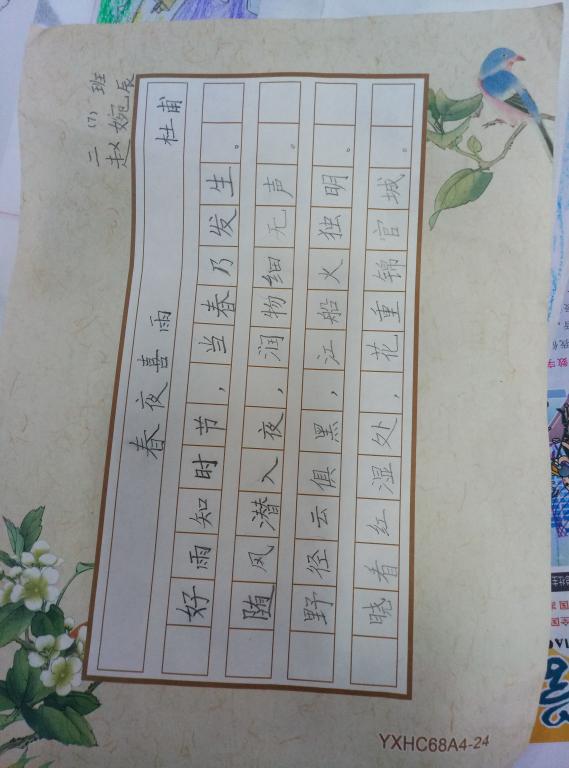 三（7）班
赵婉辰
春夜喜雨
杜甫
好雨知时节，当春乃发生。
随风潜入夜，润物细无声。
野径云俱黑，江船火独明。
晓看红湿处，花重锦官城。
YXHC68A4-24